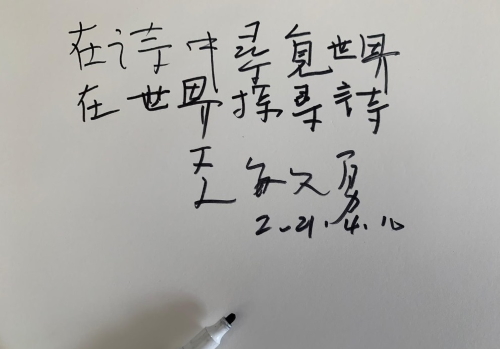 在诗中寻觅世界
在世界探寻诗
2021.4.10